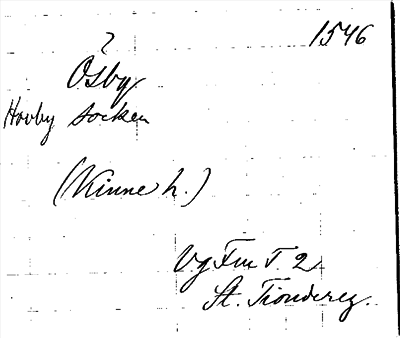 1546
?
Ösby
Hovby socken
(Kinne h.)
Vg Fm T. 2
St. Tiondereg.